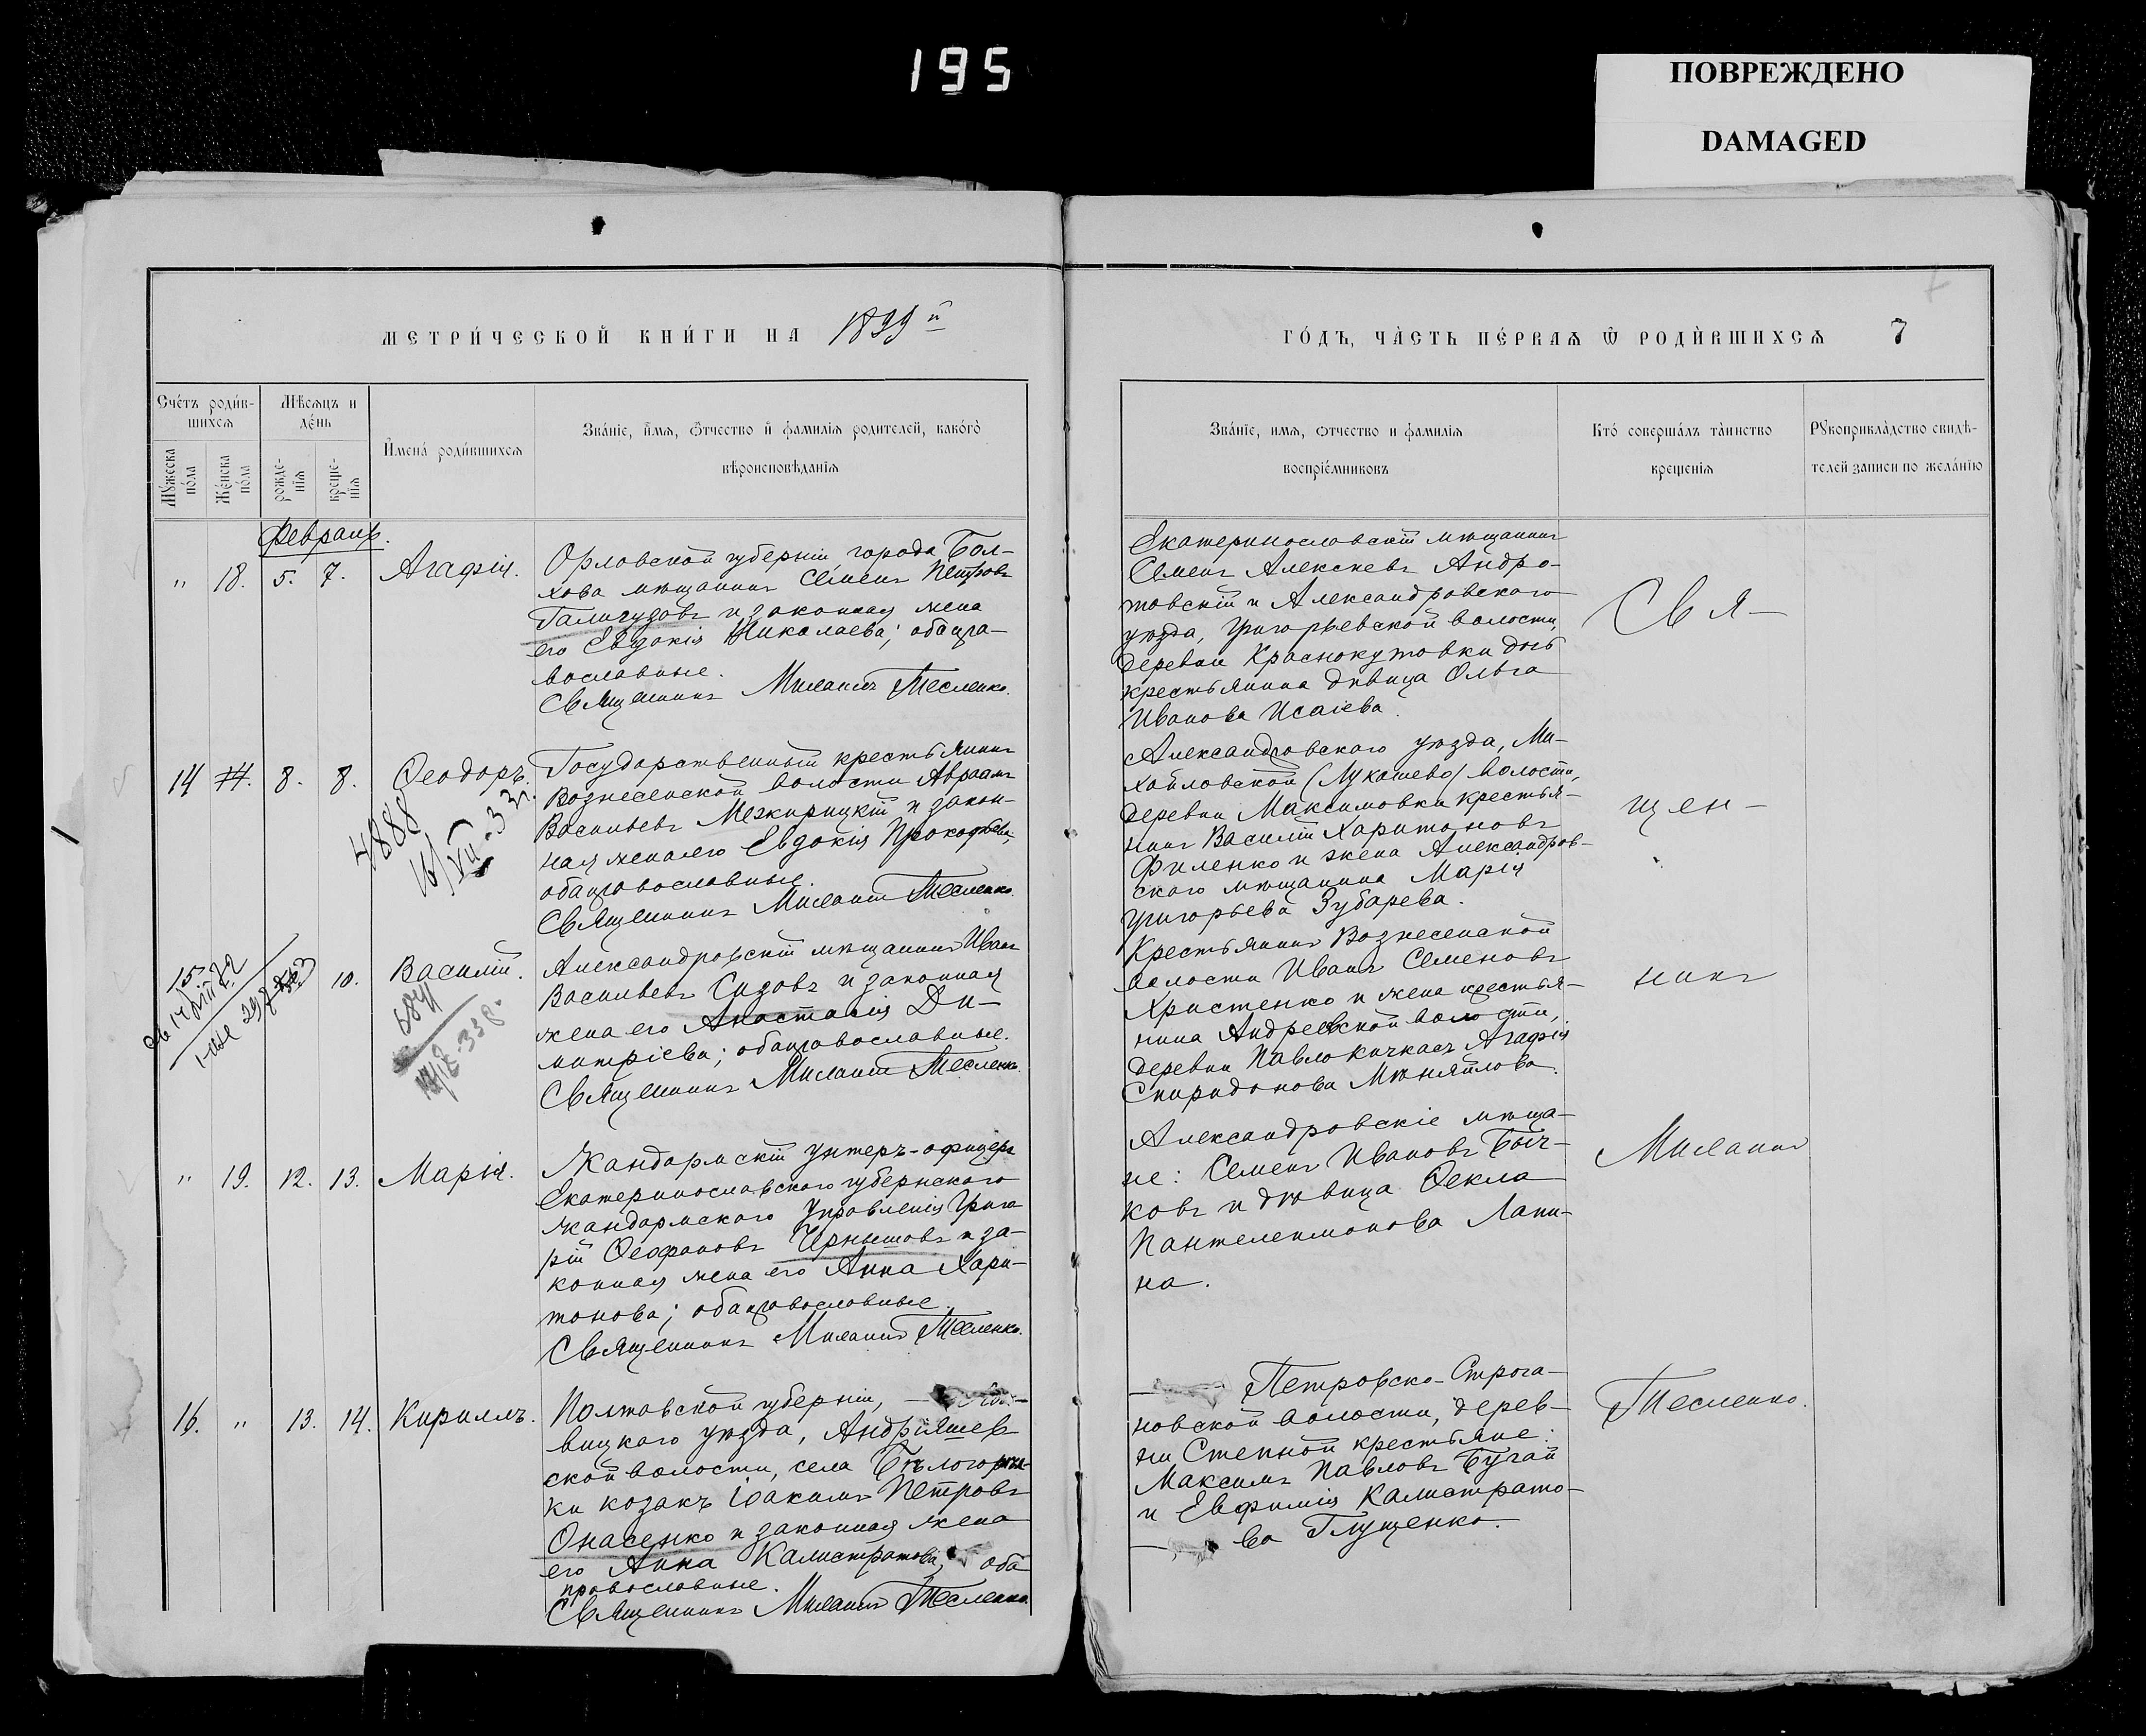 195
ПОВРЕЖДЕНО
DAMAGED
МЕТРИ́ЧЕСКОЙ КНИ́ГИ НА 1899й
ГО́ДЪ, ЧА́СТЬ ПЕ́РВАѦ Ѡ РОДИ́ВШИХСѦ 7
Сче́тъ роди́в-
шихсѧ
Мѣ́сѧцъ и
де́нь
Мꙋ́жеска
по́ла
Же́нска
по́ла
рожде-
нїѧ
креще-
нїѧ
И҆мена̀ роди́вшихсѧ
Зва́нїе, и҆́мѧ, ѻ҆́тчество и҆ фами́лїѧ роди́телей, какѡ́гѡ
вѣроисповѣ́данїѧ
Зва́нїе, имѧ, ѻтчество и фами́лїѧ
воспрїе́мниковъ
Кто̀ соверша́лъ та́инство
креще́нїѧ
Рꙋкоприкла́дство свидѣ́-
телей записи по жела́нїю
Февраль.
" 18. 5. 7. Агафія.
Орловской губерніи города Бол-
хова мѣщанинъ Семенъ Петровъ
Галичузовъ и законная жена
его Евдокія Николаева; оба пра-
вославные.
Священникъ Милантій Тесленко.
Екатеринославскій мѣщанинъ
Семенъ Алексѣевъ Андро-
товскій и Александровскаго
уѣзда, Григорьевской волости,
деревни Краснокутовки дочь
крестьянина дѣвица Ольга
Иванова Исаіева.
Свя-
14 14. 8. 8. Ѳеодоръ.
4888
Государственный крестьянинъ
Вознесенской волости Авраамъ
Васильевъ Межирицкій и закон-
ная жена его Евдокія Прокофьева,
оба православные.
Священникъ Милантій Тесленко.
Александровскаго уѣзда, Ми-
хайловской (Лукашево) волости,
деревни Максимовки крестья-
нинъ Василій Харитоновъ
Филенко и жена Александров-
скаго мѣщанина Марія
Григорьева Зубарева.
щен-
15 10. Василій.
Александровскій мѣщанинъ Иванъ
Васильевъ Сизовъ и законная
жена его Анастасія Ди-
митріева; оба православные.
Священникъ Милантій Тесленко.
Крестьянинъ Вознесенской
волости Иванъ Семеновъ
Христенко и жена крестья-
нина Андреевской волости,
деревни Павлокичкасъ Агафія
Спиридонова Мѣняйлова.
никъ
" 19. 12. 13. Марія.
Жандармскій унтеръ-офицеръ
Екатеринославскаго губернскаго
жандармскаго Управленія Григо
рій Ѳеофановъ Чернышовъ и за-
конная жена его Анна Хари-
тонова; оба православные.
Священникъ Милантій Тесленко.
Александровскіе мѣща-
не: Семенъ Ивановъ Быч-
ковъ и дѣвица Ѳекла
Пантелеимонова Лапи-
на.
Милантій
16. " 13. 14. Кириллъ.
Полтавской губерніи,
вицкаго уѣзда, Андріяшев
ской волости, села Бѣлогорил-
ки козакъ Іоакимъ Петровъ
Онасенко и законная жена
его Анна Калистратова, оба
православные.
Священникъ Милантій Тесленко.
Петровско-Строга-
новской волости, дерев-
ни Степной крестьяне:
Максимъ Павловъ Бугай
и Евфимія Калистрато-
ва Глущенко.
Тесленко.